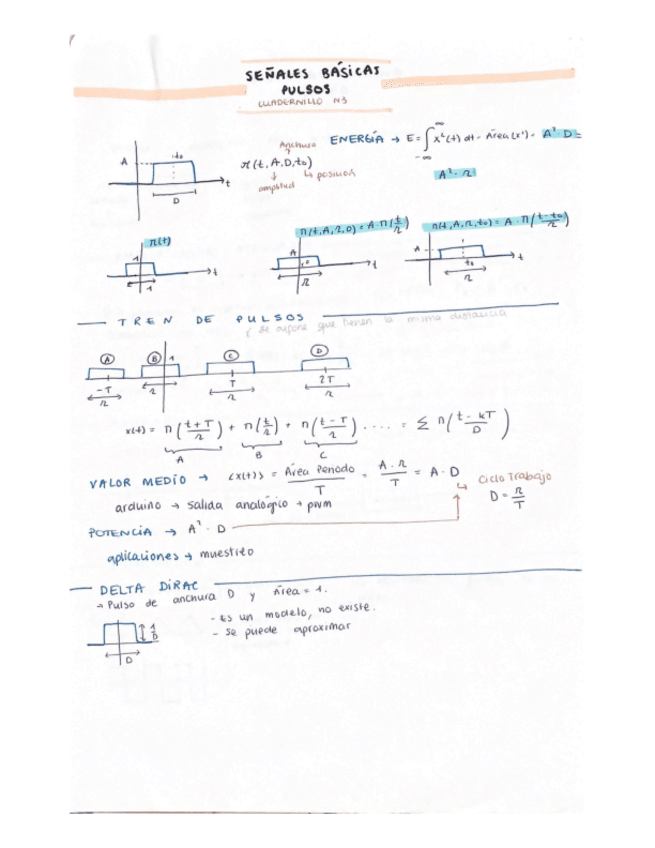 SEÑALES BÁSICAS
PULSOS
CUADERNILLO N3
Anchura
ENERGÍA → E = ∫ x²(t) dt = Área(x²) = A² D =
∞
-∞
A
to
t
D
π(t, A, D, to)
amplitud
A² · τ
π(t)
1
1
t
π(t, A, τ, 0) = A π(t/τ)
A
t
τ
π(t, A, τ, to) = A · π((t-to)/τ)
A
to
t
τ
TREN DE PULSOS
( se supone que tienen la misma distancia
A B 1 C D
-T T 2T
τ τ τ τ
x(t) = π((t+T)/τ) + π(t/τ) + π((t-T)/τ) .... = Σ π((t-kT)/D)
A B C
VALOR MEDIO → <x(t)> = Área Periodo/T = A·τ/T = A · D
Ciclo Trabajo
D = τ/T
arduino → salida analógico → pwm
POTENCIA → A² · D
aplicaciones → muestreo
DELTA DIRAC
→ Pulso de anchura D y Área = 1.
- Es un modelo, no existe.
- Se puede aproximar
1/D
D